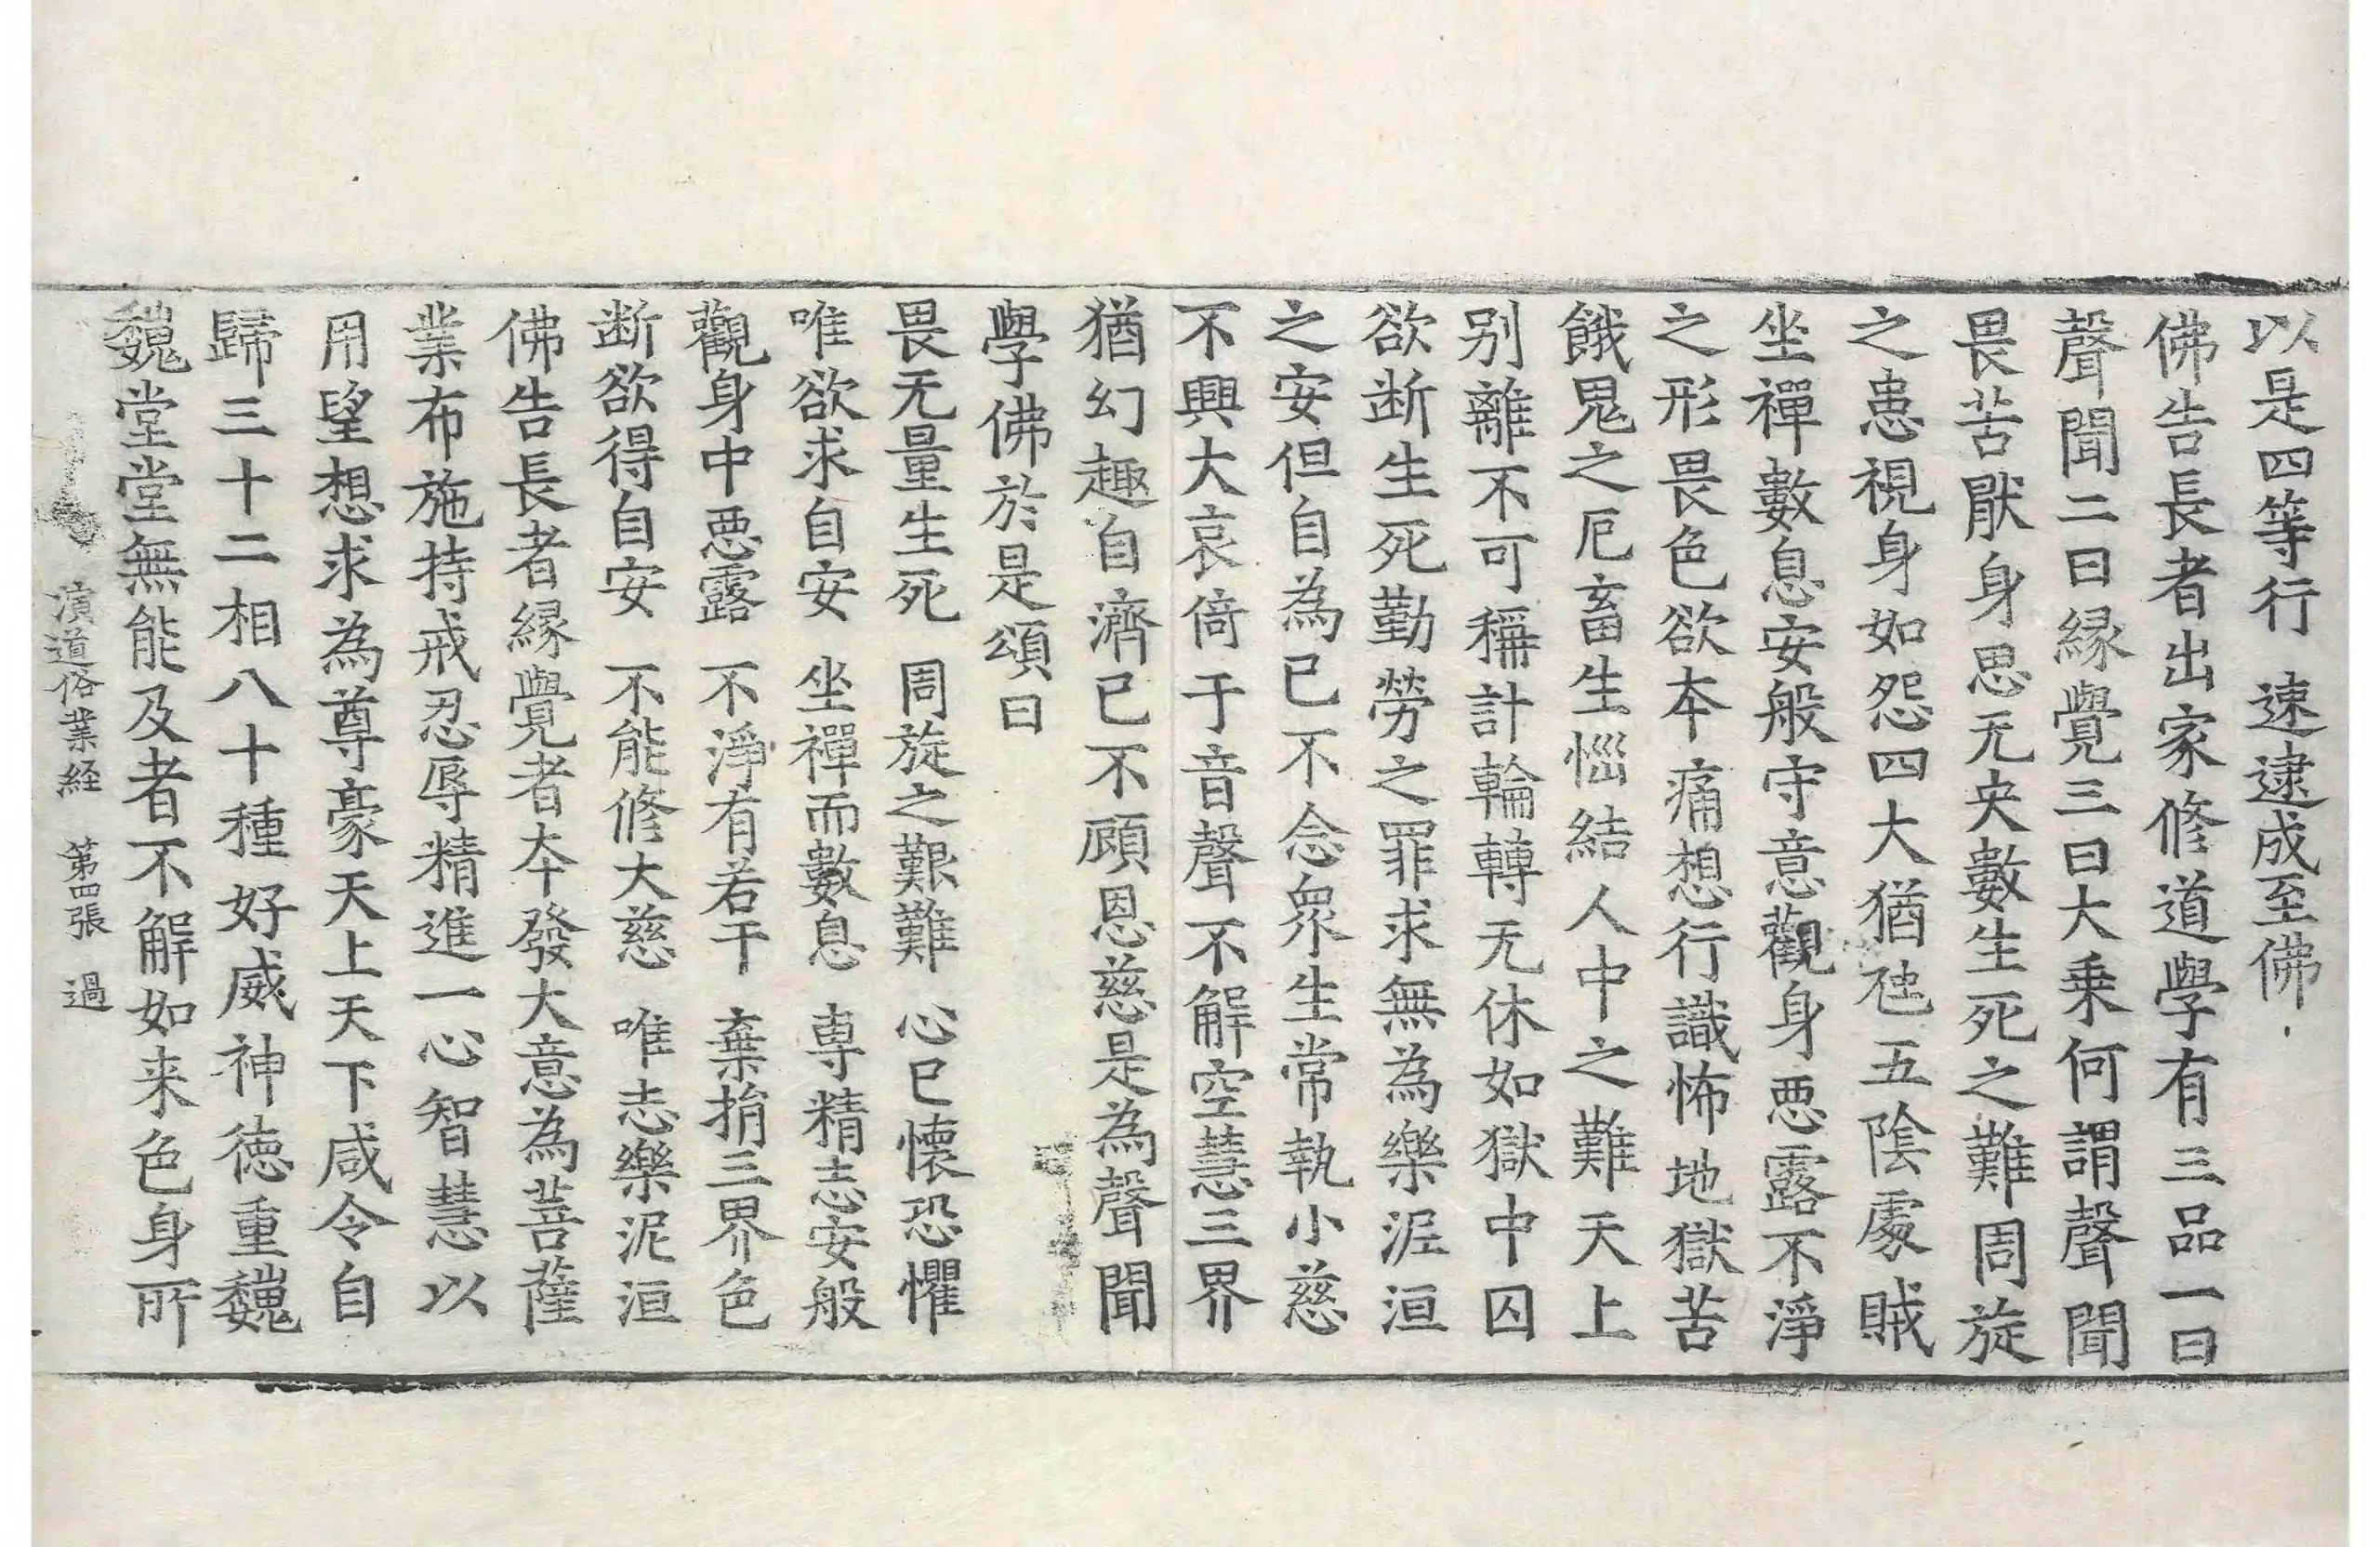 以是四等行　速逮成至佛
佛告長者出家修道學有三品一曰
聲聞二曰縁覺三曰大乗何謂聲聞
畏苦猒身思无央數生死之難周旋
之患視身如怨四大猶虵五陰處賊
坐禪數息安般守意觀身惡露不淨
之形畏色欲本痛想行識怖地獄苦
餓鬼之厄畜生惱結人中之難天上
别離不可稱計輪轉无休如獄中囚
欲断生死勤勞之罪求無為樂泥洹
之安但自為已不念衆生常執小慈
不興大哀倚于音聲不解空慧三界
猶幻趣自濟已不顧恩慈是為聲聞
學佛於是頌曰
畏无量生死　周旋之艱難　心已懷恐懼
唯欲求自安　坐禪而數息　専精志安般
觀身中惡露　不淨有若干　棄捐三界色
断欲得自安　不能修大慈　唯志樂泥洹
佛告長者縁覺者本發大意為菩薩
業布施持戒忍辱精進一心智慧以
用望想求為尊豪天上天下咸令自
歸三十二相八十種好威神徳重巍
巍堂堂無能及者不解如来色身所
演道俗業経　第四張　過